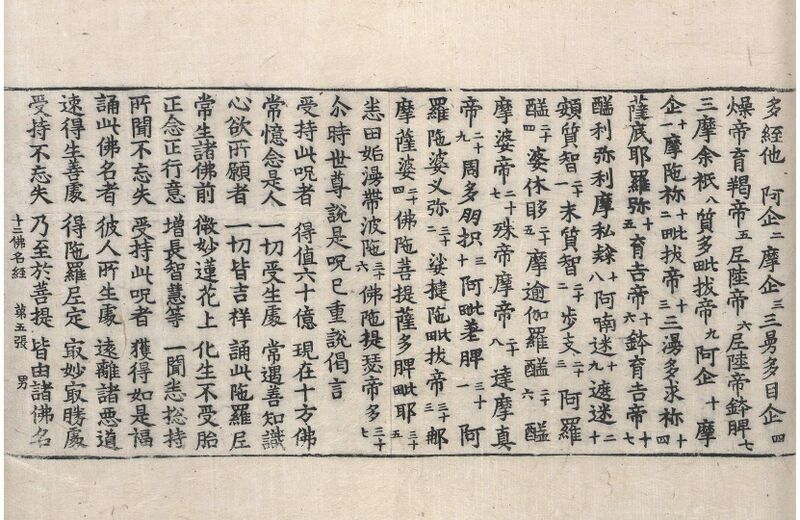 多經他 阿企二 摩企三 三曼多目企四
燥帝育羯帝五 𡰱陸帝六 𡰱陸帝鉢脾七
三摩余衹八 質多毗拔帝九 阿企十 摩
企十一 摩陁祢十二 毗拔帝十三 三湯多求祢十四
薩底耶羅弥十五 育吉帝十六 鉢育吉帝十七
醯利弥利摩私十八 阿喃迷十九 遮迷二十
頞質智二十一 末質智二十二 步支二十三 阿羅
醯二十四 婆休哆二十五 摩逾伽羅醯二十六 醯
摩婆帝二十七 殊帝摩帝二十八 達摩真
帝二十九 周多朋抧三十 阿毗差脾三十一 阿
羅陁婆义弥三十二 娑揵陁毗拔帝三十三 那
摩薩婆三十四 佛陁菩提薩多脾毗耶三十五
恙田姤湯帶波陁三十六 佛陁提瑟帝多三十七
尒時世尊說是呪已重說偈言
受持此呪者 得值六十億 現在十方佛
常憶念是人 一切受生處 常遇善知識
心欲所願者 一切皆吉祥 誦此陁羅𡰱
常生諸佛前 微妙蓮花上 化生不受胎
正念正行意 增長智慧等 一聞悉揔持
所聞不忘失 受持此呪者 獲得如是福
誦此佛名者 彼人所生處 遠離諸惡道
速得生善處 得陁羅𡰱定 㝡妙㝡勝處
受持不忘失 乃至於菩提 皆由諸佛名
十二佛名經 第五張 男